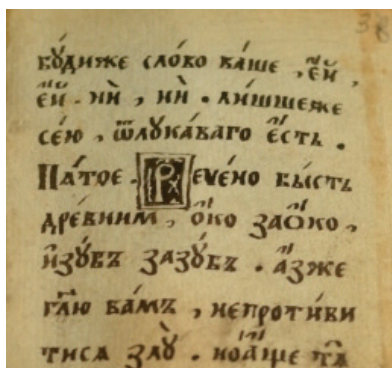 бꙋ́диже сло́во ва́ше , є҆́й ,
є҆́й . нѝ , нѝ . ли́шшеже
сею̀ , ѿлꙋка́ваго є҆́сть .
Па́тое . Рече́но бы́сть
дре́вним , ѻ҆́ко заѻ҆́ко ,
и҆зꙋ́бъ зазꙋ́бъ . а҆́зже
гл҃ю ва́мъ , непроти́ви
тисѧ злꙋ̀ . ноа҆́ще тѧ